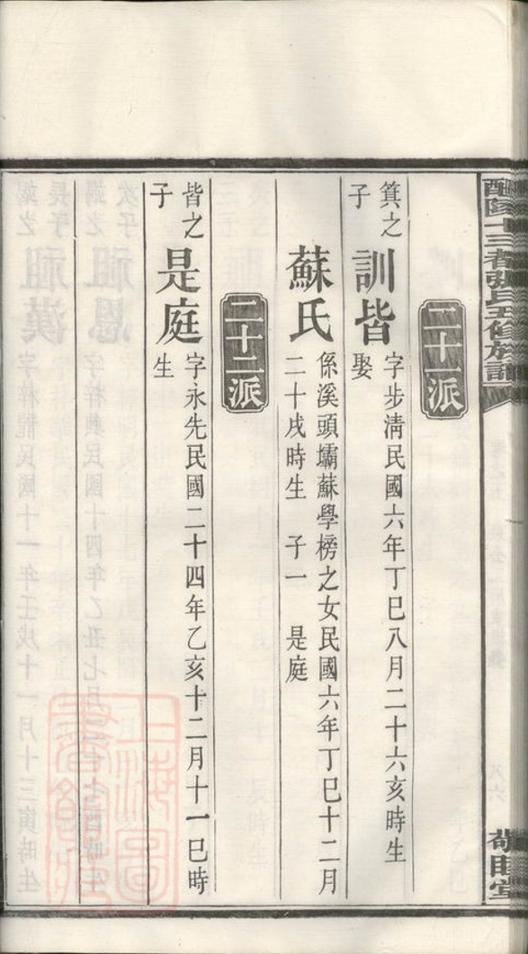 十三都張氏五修族譜
敬睦堂
二十一派
箕之子
訓皆
字步清民國六年丁巳八月二十六亥時生
娶
蘇氏
係溪頭壩蘇學榜之女民國六年丁巳十二月
二十戌時生 子一 是庭
二十二派
皆之子
是庭
字永先民國二十四年乙亥十二月十一巳時
生